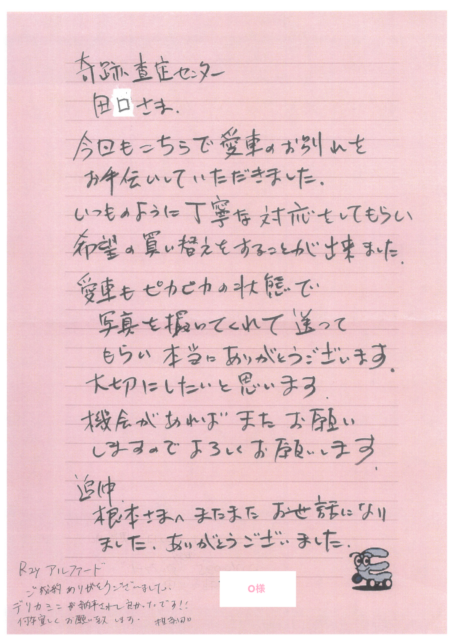 奇跡査定センター
田口さま.
今回もこちらで愛車のお別れを
お手伝いしていただきました.
いつものように丁寧な対応をしてもらい
希望の買い替えをすることが出来ました.
愛車もピカピカの状態で
写真を撮いてくれて送って
もらい本当にありがとうございます.
大切にしたいと思います.
機会があればまたお願い
しますのでよろしくお願いします.
追伸
根本さまへまたまたお世話になり
ました.ありがとうございました.
R2y アルファード
ご契約ありがとうございました.
デリカミニが納車されて良かったです!!
何卒宜しくお願い致します.
O様